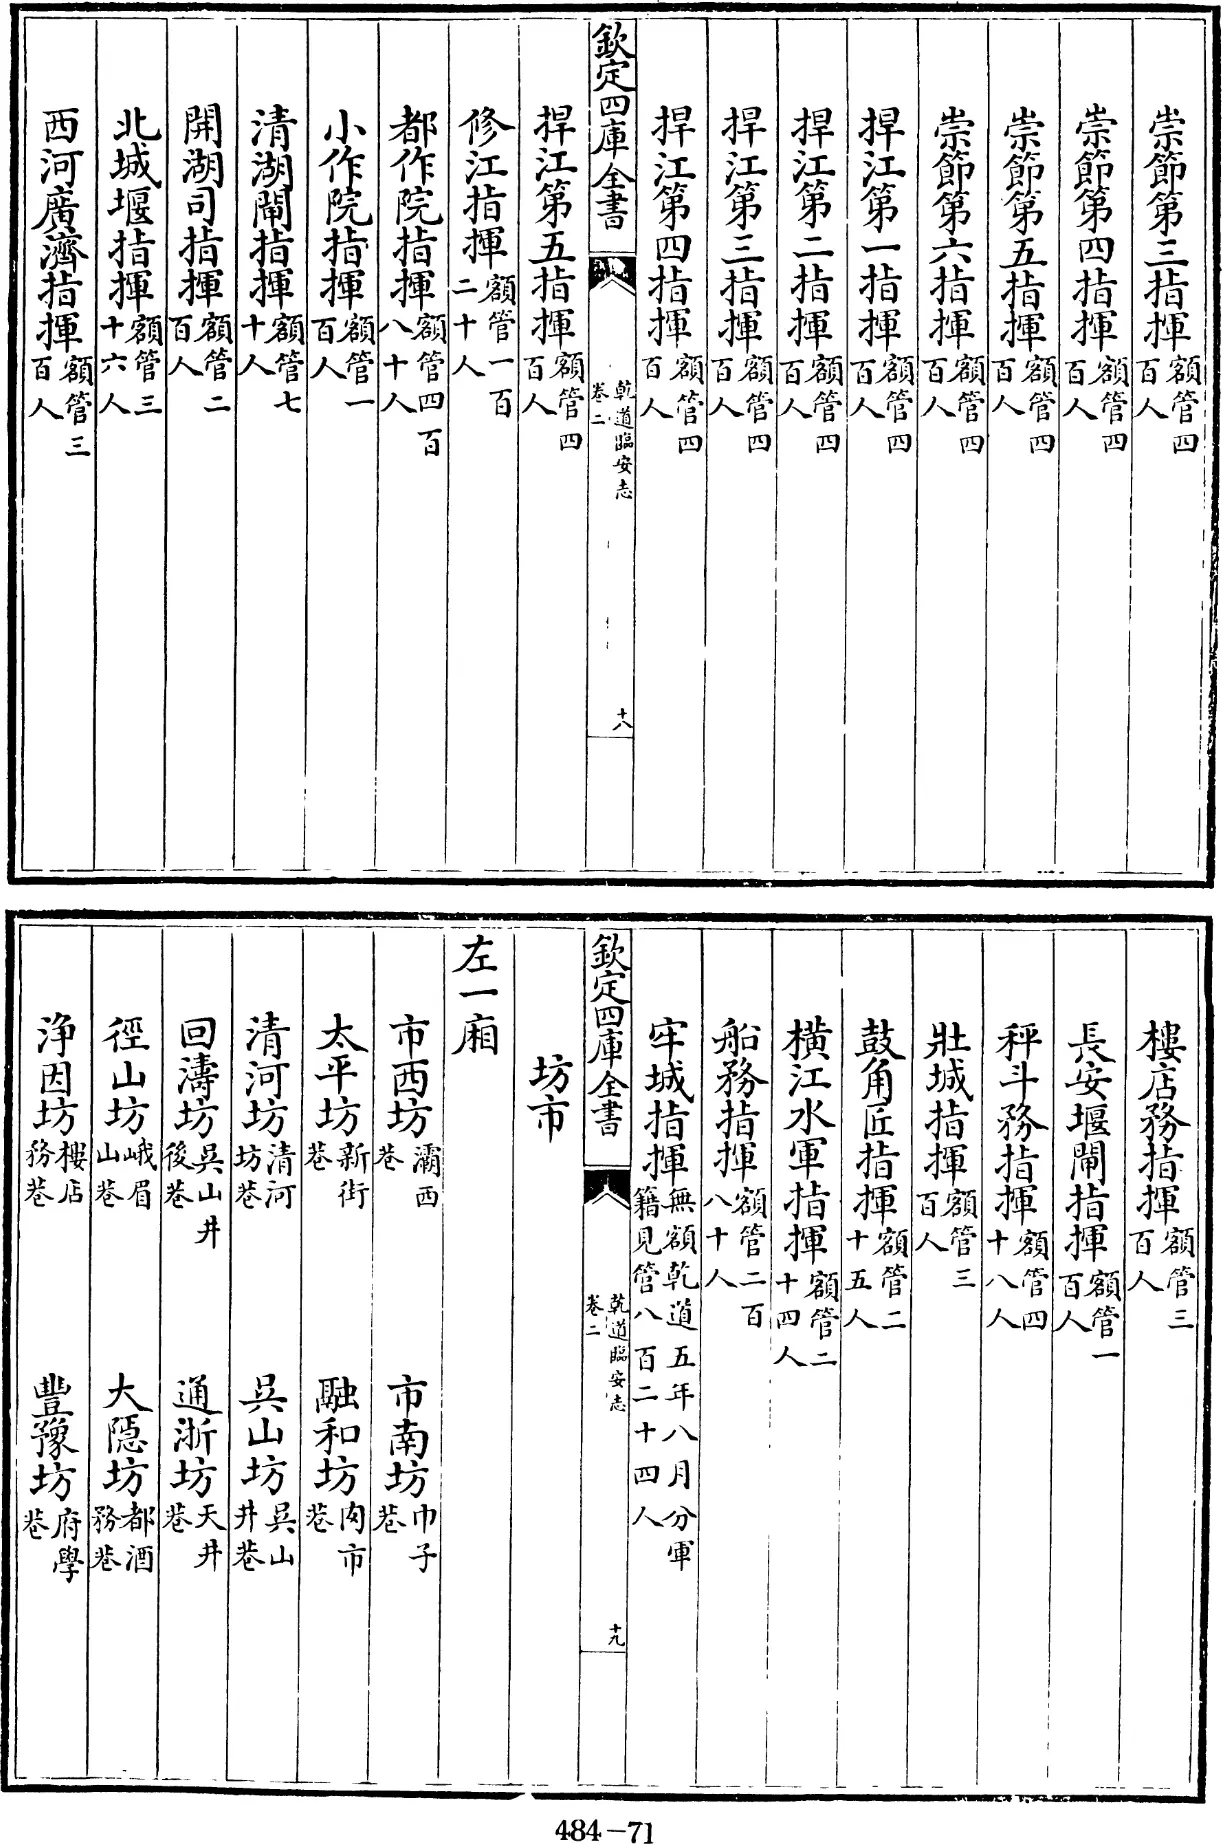 崇節第三指揮額管四百人
崇節第四指揮額管四百人
崇節第五指揮額管四百人
崇節第六指揮額管四百人
捍江第一指揮額管四百人
捍江第二指揮額管四百人
捍江第三指揮額管四百人
捍江第四指揮額管四百人
欽定四庫全書 乾道臨安志卷二 十八
捍江第五指揮額管四百人
修江指揮額管一百二十人
都作院指揮額管四百八十人
小作院指揮額管一百人
清湖閘指揮額管七十人
開湖司指揮額管二百人
北城堰指揮額管三十六人
西河廣濟指揮額管三百人
樓店務指揮額管三百人
長安堰閘指揮額管一百人
秤斗務指揮額管四十八人
壯城指揮額管三百人
鼓角匠指揮額管二十五人
橫江水軍指揮額管二十四人
船務指揮額管二百八十人
牢城指揮無額乾道五年八月分軍籍見管八百二十四人
欽定四庫全書 乾道臨安志卷二 十九
坊市
左一廂
市西坊灞西巷 市南坊巾子巷
太平坊新街巷 融和坊肉市巷
清河坊清河坊巷 吳山坊吳山井巷
回濤坊吳山井後巷 通浙坊天井巷
徑山坊峨眉山巷 大隱坊都酒務巷
淨因坊樓店務巷 豐豫坊府學巷
484-71